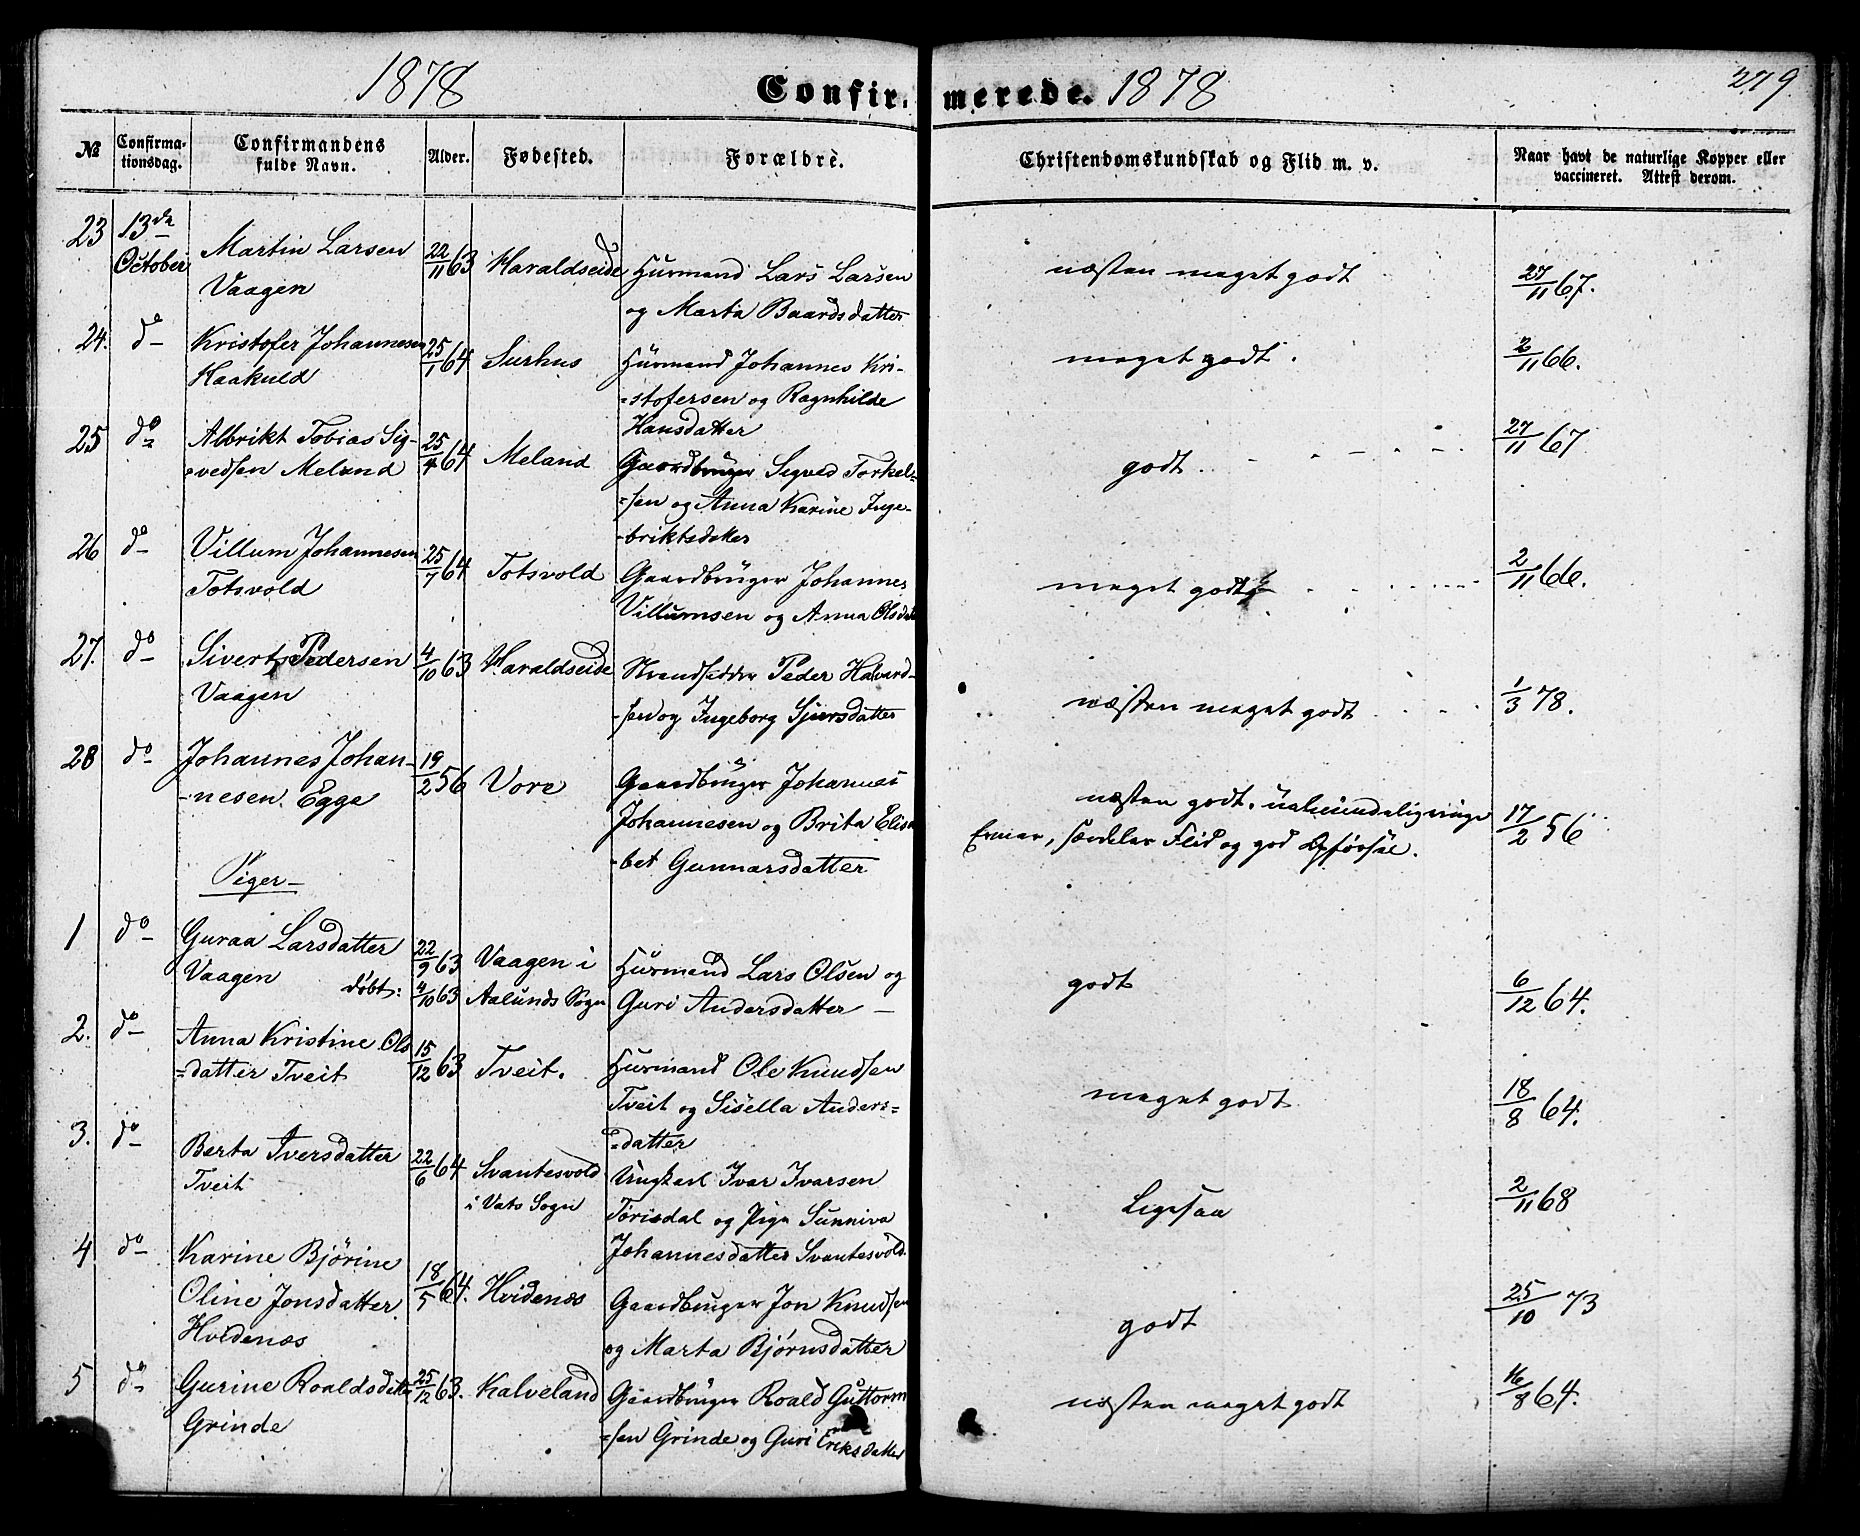 1878 Confirmerede. 1878 279.
№ Confirmationsdag. Confirmandens fulde Navn. Alder. Fødested. Forældre. Christendomskundskab og Flid m. v. Naar havt de naturlige Kopper eller vaccineret. Attest derom.
23 13de October Martin Larsen 22/11 63 Haraldseide Huusmand Lars Larsen næsten meget godt 27/11 67.
Vaagen og Marta Baardsdatter
24. do Kristofer Johannesen 25/1 64 Surhus Huusmand Johannes Kri- meget godt. 2/11 66.
Haakuld =stofersen og Ragnhilde
Hansdatter
25 do Albrikt Tobias Sig- 25/4 64 Meland Gaardbruger Sigvad Torkel= godt. 27/11 67
=vedsen Meland =sen og Anna Karine Inge-
-briktsdatter
26 do Villum Johannesen 25/7 64 Totsvold Gaardbruger Johannes meget godt 2/11 66.
Totsvold Villumsen og Anna Olsdatt
27. do Sivert Pedersen 4/10 63 Haraldseide Strandsidder Peder Halvard- næsten meget godt 1/3 78.
Vaagen -sen og Ingeborg Sjursdatter
28 do Johannes Johan- 19/2 56 Vore Gaardbruger Johannes næsten godt. ualmindelig ringe 17/2 56
-nesen Egge Johannesen og Brita Elisa Evner, særdeles Flid og god Opførsel.
-bet Gunnarsdatter
Piger-
1 do Guraa Larsdatter 22/9 63 Vaagen i Huusmand Lars Olsen og godt 6/12 64.
Vaagen døbt: 4/10 63 Aalunds Sogn Guri Andersdatter —
2. do Anna Kristine Ols 15/12 63 Tveit. Huusmand Ole Knudsen meget godt 18/8 64.
=datter Tveit Tveit og Sisella Anders=
=datter
3. do Berta Iversdatter 22/6 64 Svantesvold Ungkarl Ivar Ivarsen Ligesaa 2/11 68
Tveit i Vats Sogn Torisdal og Pige Sunniva
Johannesdatter Svantesvold.
4 do Karine Bjørine 18/5 64. Hvidenæs Gaardbruger Jon Knudsen godt 25/10 73
Oline Jonsdatter og Marta Bjørnsdatter
Hvidenæs
5 do Gurine Roaldsdatter 25/12 63. Kalveland Gaardbruger Roald Guttorm næsten meget godt 16/8 64.
Grinde =sen Grinde og Guri Eriksdatter